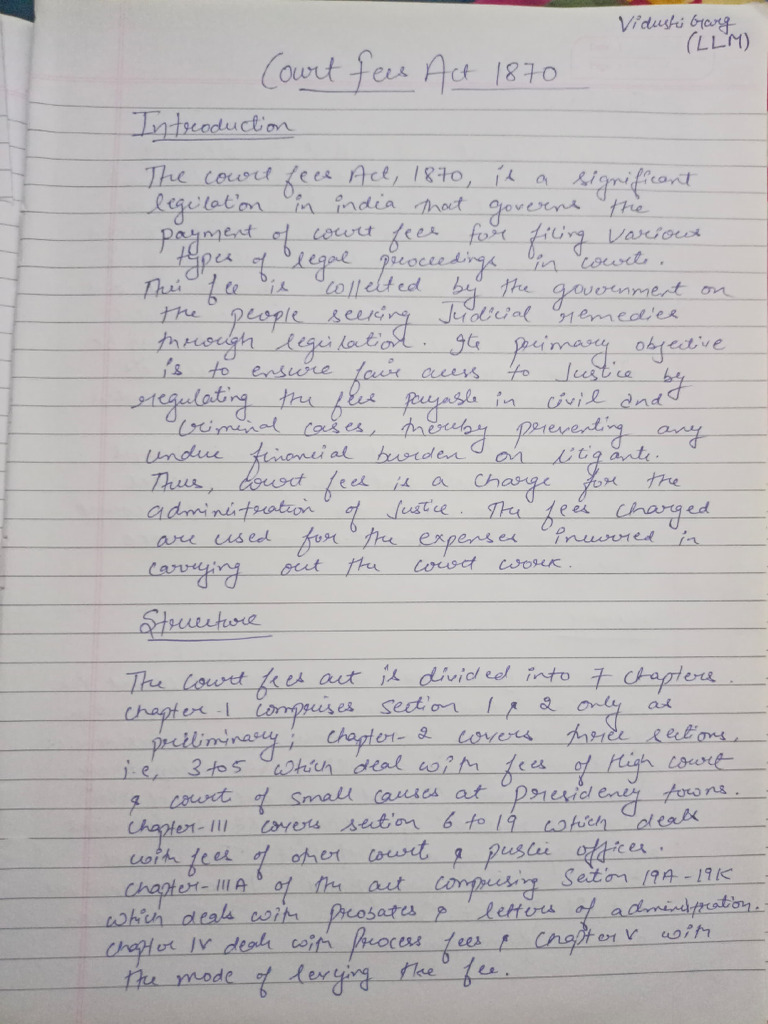 Vidushi Garg
(LLM)
Court fees Act 1870
Introduction
The court fees Act, 1870, is a significant
legislation in india that governs the
payment of court fees for filing various
types of legal proceedings in courts.
This fee is collected by the government on
the people seeking Judicial remedies
through legislation. Its primary objective
is to ensure fair access to Justice by
regulating the fees payable in civil and
Criminal cases, thereby preventing any
undue financial burden on litigants.
Thus, court fees is a charge for the
administration of Justice. The fees charged
are used for the expenses incurred in
carrying out the court work.
Structure
The court fees act is divided into 7 chapters.
chapter-1 comprises section 1 & 2 only as
preliminary; chapter-2 covers three sections,
i.e, 3 to 5 which deal with fees of High court
& court of small causes at presidency towns.
chapter-III covers section 6 to 19 which deals
with fees of other court & public offices.
chapter-IIIA of the act comprising Section 19A-19K
which deals with probates & letters of administration.
chapter IV deals with Process fees & Chapter V with
the mode of levying the fee.